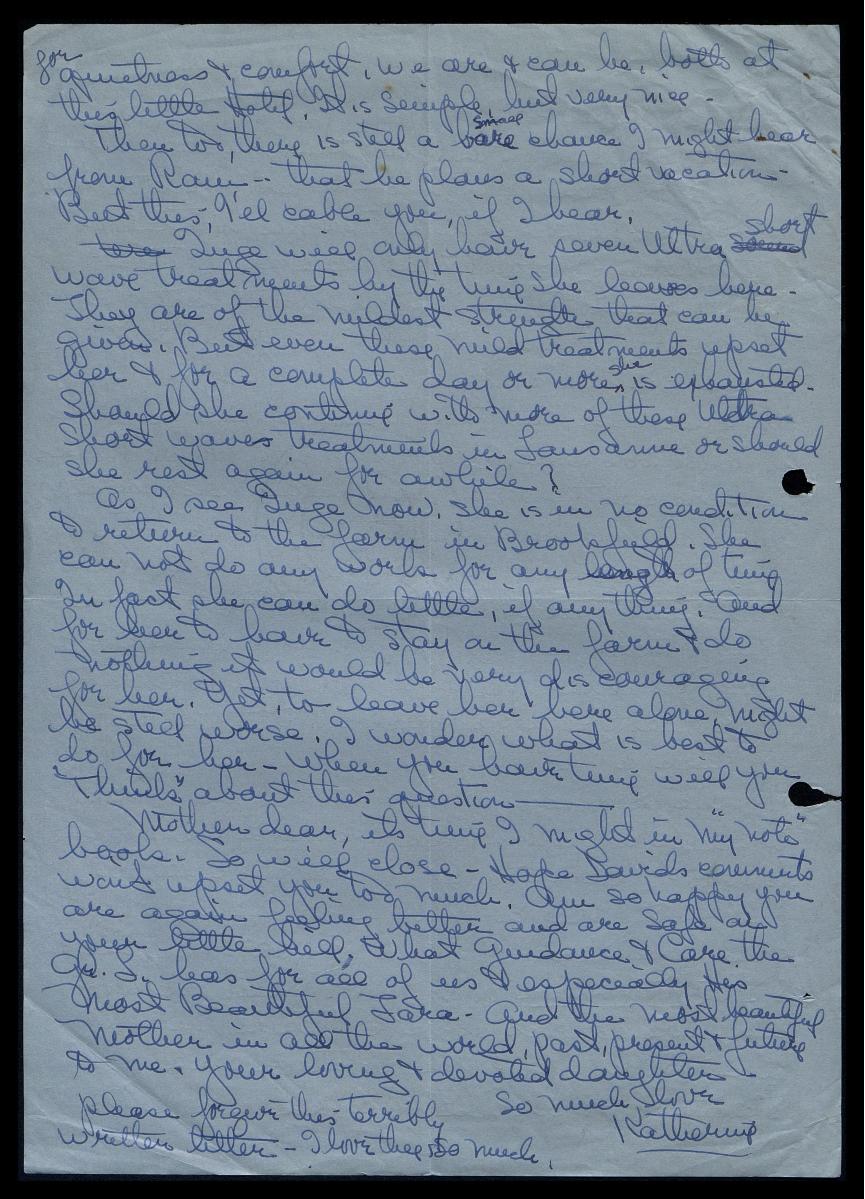 for quietness & comfort, we are & can be, both at
this little Hotel. It is simple, but very nice -
Then too, there is still a bare small chance I might hear
from Ram -- that he plans a short vacation -
But this, I'll cable you, if I hear.
Inge will only have seven Ultra short
wave treatments by the time she leaves here -
They are of the mildest strength that can be
given. But even these mild treatments upset
her & for a complete day or more, she is exhausted.
Should she continue with more of these Ultra
short waves treatments in Lausanne or should
she rest again for awhile?
As I see Inge now, she is in no condition
to return to the farm in Brookfield. She
can not do any work for any length of time
In fact she can do little, if any thing. And
for her to have to stay on the farm & do
nothing it would be very discouraging
for her. Yet, to leave her here alone, might
be still worse. I wonder what is best to
do for her - when you have time will you
"Think" about this question
Mother dear, its time I might in "my note"
book. So will close - Hope Davids comments
wont upset you too much. Am so happy you
are again feeling better and are safe on
your little hill. What Guidance & Care the
Gr. S. has for all of us & especially His
Most Beautiful Zara - And the most beautiful
Mother in all the world, past, present & future
to me. Your loving & devoted daughter
So much love
Katherine
please forgive this terribly
written letter - I love thee so much.